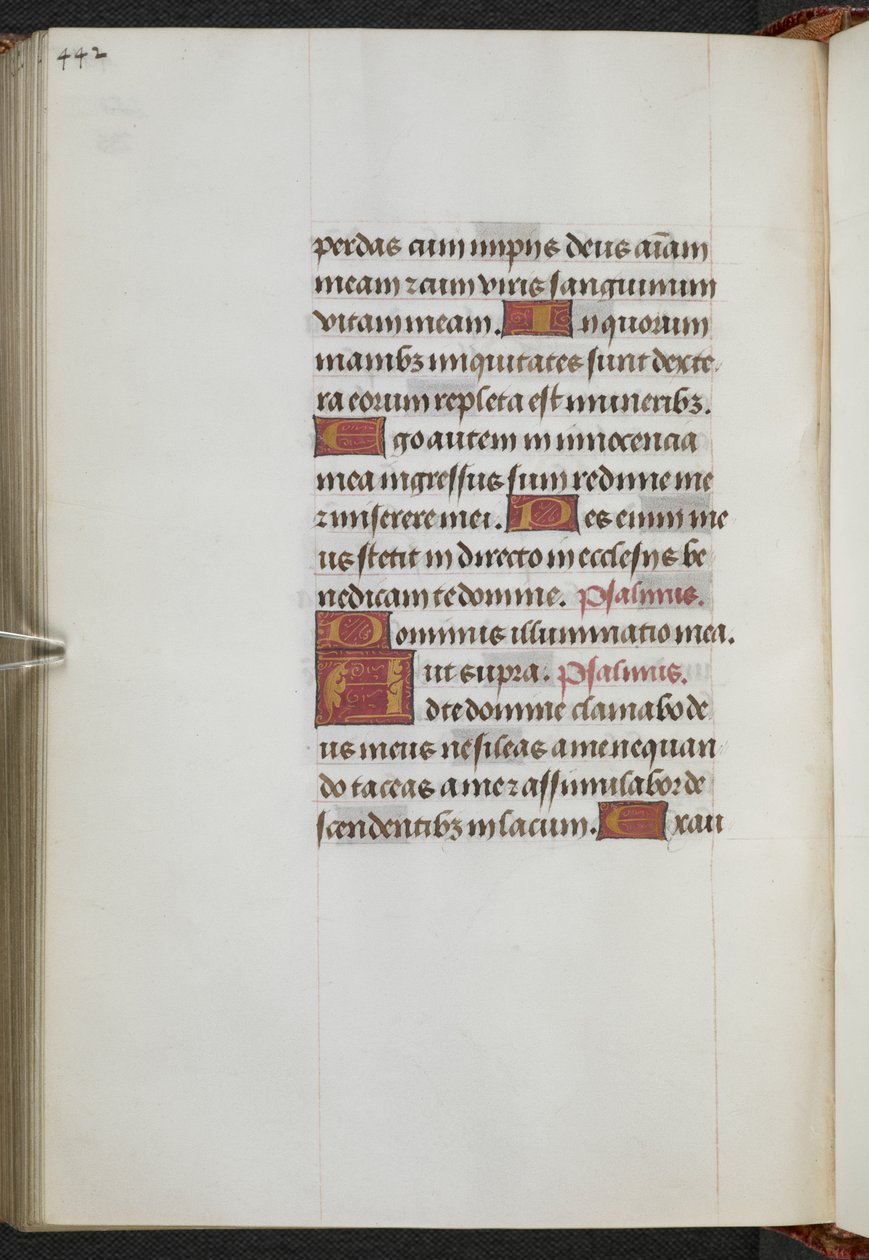 442
perdas cum impijs deus aīam
meam ⁊ cum viris sanguinum
vitam meam. In quorum
manibꝫ iniquitates sunt dexte
ra eorum repleta est muneribꝫ.
Ego autem in innocencia
mea ingressus sum redime me
⁊ miserere mei. Pes enim me
us stetit in directo in ecclesijs be
nedicam te domine. Psalmus.
Dominus illuminatio mea.
ut supra. Psalmus.
Ad te domine clamabo de
us meus ne sileas a me nequan
do taceas a me ⁊ assimilabor de
scendentibꝫ in lacum. Exau